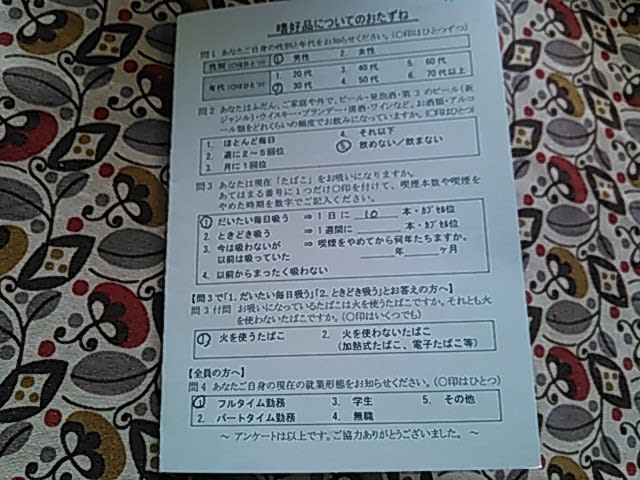 嗜好品についてのおたずね
問1 あなたご自身の性別と年代をお知らせください。(○印はひとつずつ)
性別(○はひとつ) 1. 男性 2. 女性
年代(○はひとつ) 1. 20代 3. 40代 5. 60代
2. 30代 4. 50代 6. 70代以上
問2 あなたはふだん、ご家庭や外で、ビール・発泡酒・第3のビール(新
ジャンル)・ウイスキー・ブランデー・清酒・ワインなど、お酒類・アルコ
ール類をどれくらいの頻度でお飲みになっていますか。(○印はひとつ)
1. ほとんど毎日 4. それ以下
2. 週に2~5回位 5. 飲めない/飲まない
3. 月に1回位
問3 あなたは現在「たばこ」をお吸いになりますか。
あてはまる番号に1つだけ○印を付けて、喫煙本数や喫煙を
やめた時期を数字でご記入ください。
1. だいたい毎日吸う ⇒ 1日に 10 本・カプセル位
2. ときどき吸う ⇒ 1週間に 本・カプセル位
3. 今は吸わないが ⇒ 喫煙をやめてから何年たちますか。
以前は吸っていた 年 ヶ月
4. 以前からまったく吸わない
【問3で「1.だいたい毎日吸う」「2.ときどき吸う」とお答えの方へ】
問3付問 お吸いになっているたばこは火を使うたばこですか。それとも火
を使わないたばこですか。(○印はいくつでも)
1. 火を使うたばこ 2. 火を使わないたばこ
(加熱式たばこ、電子たばこ等)
【全員の方へ】
問4 あなたご自身の現在の就業形態をお知らせください。(○印はひとつ)
1. フルタイム勤務 3. 学生 5. その他
2. パートタイム勤務 4. 無職
~ アンケートは以上です。ご協力ありがとうございました。 ~